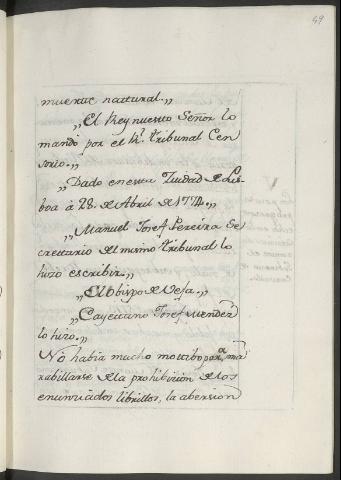 49
muerte natural.,,
,,El Rey nuestro Señor lo
mandó por el Rl. tribunal Cen
sorio.,,
,,Dado en esta Ziudad de Lis
boa à 28. de Abril de 1774.,,
,,Manuel Josef Pereira Se
cretario del mismo tribunal lo
hizo escribir.,,
,,El Obispo de Vefa.,,
,,Cayetano Josef Mendez
lo hizo.,,
No habia mucho motibo para ma
rabillarse de la prohibicion de los
enunciados librillos, la abersion